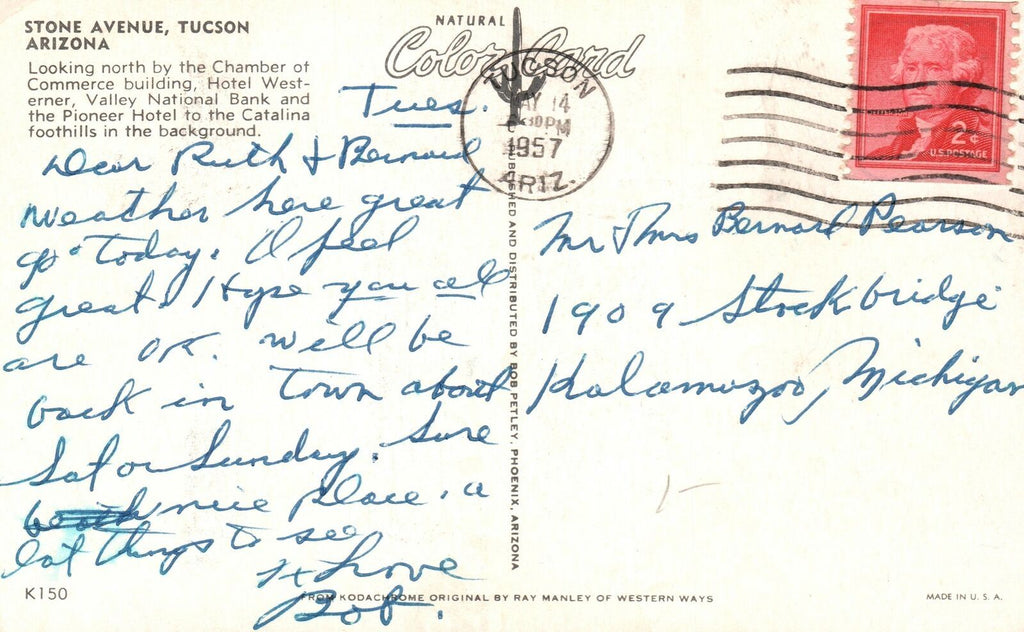 STONE AVENUE, TUCSON
ARIZONA
Looking north by the Chamber of
Commerce building, Hotel West-
erner, Valley National Bank and
the Pioneer Hotel to the Catalina
foothills in the background.
NATURAL
Color Card
TUCSON
MAY 14
30 PM
1957
ARIZ.
2¢
U.S. POSTAGE
Tues.
Dear Ruth & Bernard
Weather here great
90° today. I feel
great. Hope you all
are OK. will be
back in town about
Sat or Sunday. Sure
nice place. a
lot things to see
Love
Bob.
PUBLISHED AND DISTRIBUTED BY BOB PETLEY, PHOENIX, ARIZONA
Mr & Mrs Bernard Pearson
1909 Stockbridge
Kalamazoo, Michigan
K150
FROM KODACHROME ORIGINAL BY RAY MANLEY OF WESTERN WAYS
MADE IN U. S. A.